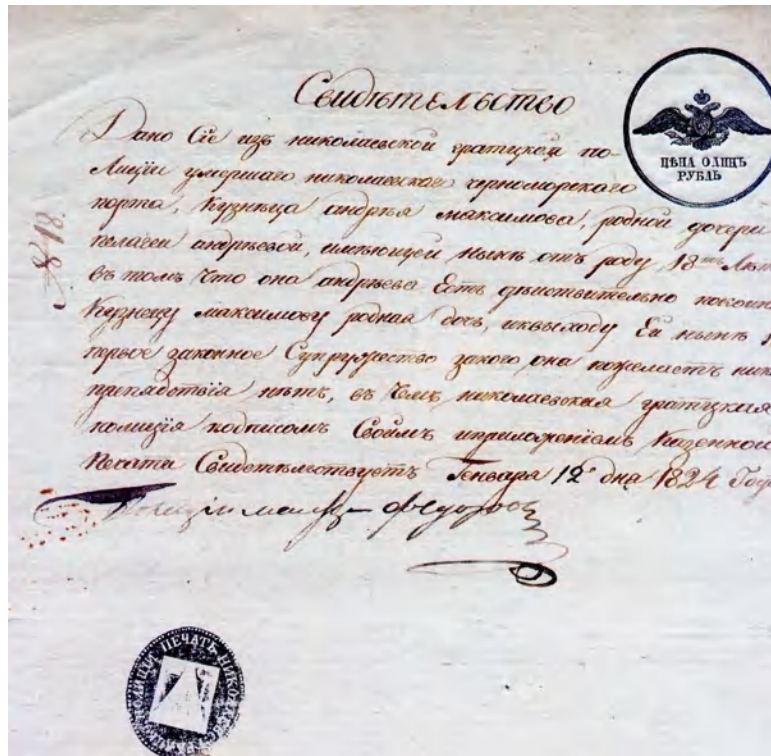 Свидѣтельство
ЦѢНА ОДИНЪ
РУБЛЬ
Дано Сіе изъ николаевской грацкой по-
лиціи умершаго николаевскаго черноморского
порта, Кузнѣца андрѣя максимова, родной дочери
пелагеи андрѣевой, имѣющей нынѣ отъ роду 18ть Лѣт
въ томъ что она андрѣева Есть дѣиствительно покоин
Кузнецу максимову родная дочь, иквыходу Ей нынѣ
первое законное Супружество закого она пожелаетъ ник
препядствія нѣтъ, въ чемъ николаевская грацкая
полиція подписомъ Своимъ иприложеніемъ Казенной
Печати Свидетельствуетъ Генваря 12 дна 1824 Году
№ 18
Полиціи Федоров
ПОЛИЦІИ ПЕЧАТЬ НИКОЛАЕВ